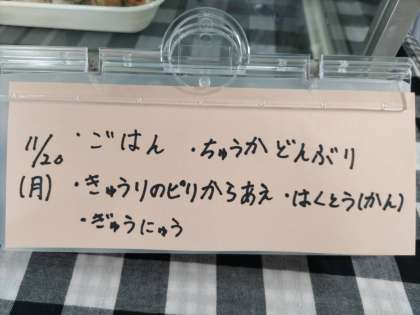 11/20 ・ごはん ・ちゅうかどんぶり
(月) ・きゅうりのピリからあえ ・はくとう(かん)
・ぎゅうにゅう